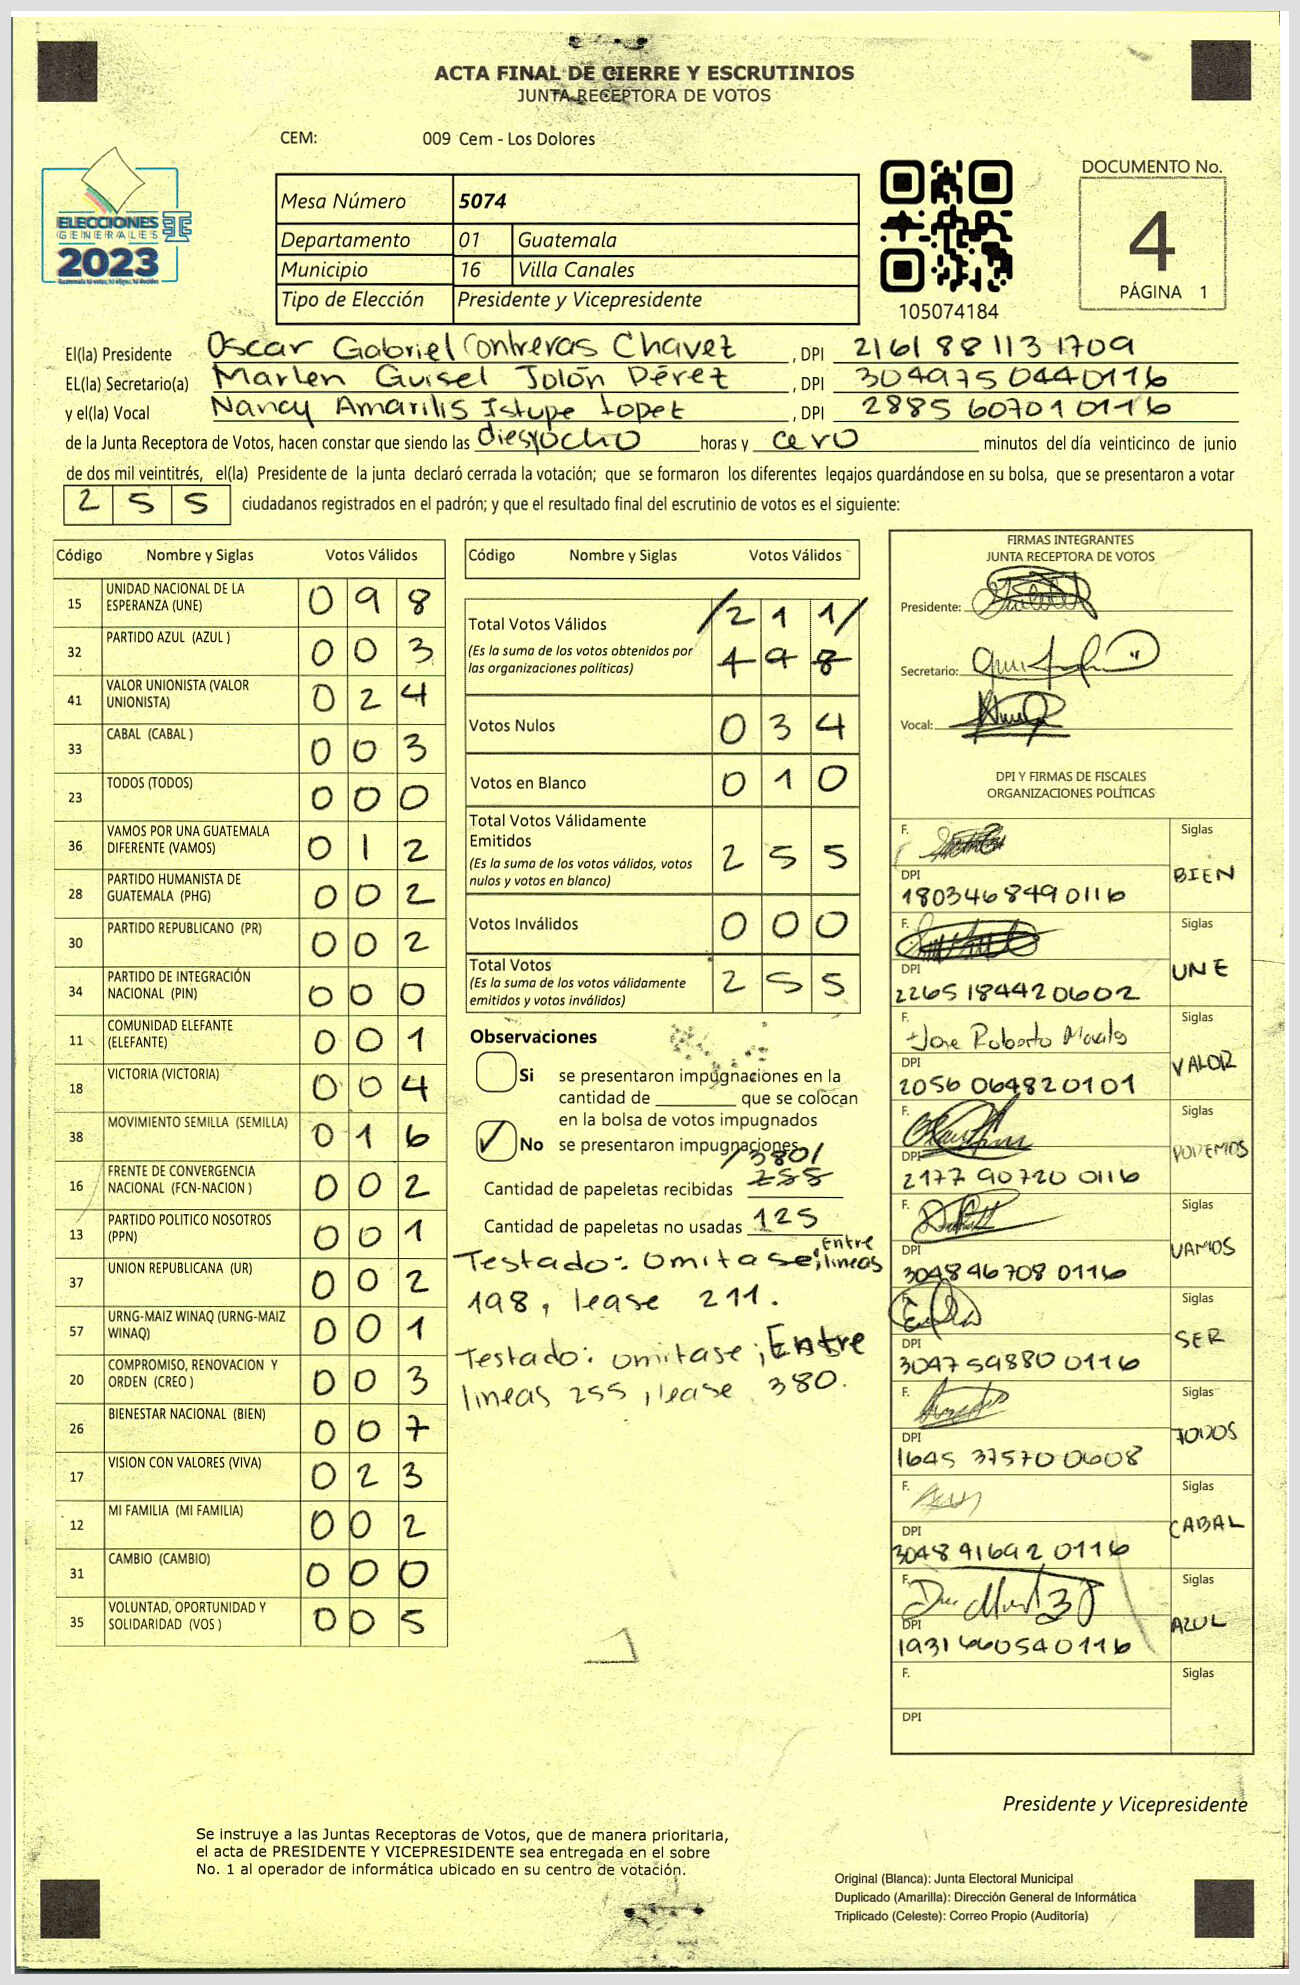 ACTA FINAL DE CIERRE Y ESCRUTINIOS
JUNTA RECEPTORA DE VOTOS
CEM: 009 Cem - Los Dolores
ELECCIONES
GENERALES
2023
Mesa Número 5074
Departamento 01 Guatemala
Municipio 16 Villa Canales
Tipo de Elección Presidente y Vicepresidente
105074184
DOCUMENTO No.
4
PÁGINA 1
El(la) Presidente Oscar Gabriel Contreras Chavez , DPI 2161 88113 1709
EL(la) Secretario(a) Marlen Guisel Jolón Pérez , DPI 304975044 0116
y el(la) Vocal Nancy Amarilis Istupe Lopez , DPI 2885 60701 0116
de la Junta Receptora de Votos, hacen constar que siendo las diesyocho horas y cero minutos del día veinticinco de junio
de dos mil veintitrés, el(la) Presidente de la junta declaró cerrada la votación; que se formaron los diferentes legajos guardándose en su bolsa, que se presentaron a votar
2 5 5 ciudadanos registrados en el padrón; y que el resultado final del escrutinio de votos es el siguiente:
Código Nombre y Siglas Votos Válidos
15 UNIDAD NACIONAL DE LA ESPERANZA (UNE) 0 9 8
32 PARTIDO AZUL (AZUL ) 0 0 3
41 VALOR UNIONISTA (VALOR UNIONISTA) 0 2 4
33 CABAL (CABAL ) 0 0 3
23 TODOS (TODOS) 0 0 0
36 VAMOS POR UNA GUATEMALA DIFERENTE (VAMOS) 0 1 2
28 PARTIDO HUMANISTA DE GUATEMALA (PHG) 0 0 2
30 PARTIDO REPUBLICANO (PR) 0 0 2
34 PARTIDO DE INTEGRACIÓN NACIONAL (PIN) 0 0 0
11 COMUNIDAD ELEFANTE (ELEFANTE) 0 0 1
18 VICTORIA (VICTORIA) 0 0 4
38 MOVIMIENTO SEMILLA (SEMILLA) 0 1 6
16 FRENTE DE CONVERGENCIA NACIONAL (FCN-NACION ) 0 0 2
13 PARTIDO POLITICO NOSOTROS (PPN) 0 0 1
37 UNION REPUBLICANA (UR) 0 0 2
57 URNG-MAIZ WINAQ (URNG-MAIZ WINAQ) 0 0 1
20 COMPROMISO, RENOVACION Y ORDEN (CREO ) 0 0 3
26 BIENESTAR NACIONAL (BIEN) 0 0 7
17 VISION CON VALORES (VIVA) 0 2 3
12 MI FAMILIA (MI FAMILIA) 0 0 2
31 CAMBIO (CAMBIO) 0 0 0
35 VOLUNTAD, OPORTUNIDAD Y SOLIDARIDAD (VOS ) 0 0 5
Código Nombre y Siglas Votos Válidos
Total Votos Válidos /2 1 1/
(Es la suma de los votos obtenidos por las organizaciones políticas) 1 9 8
Votos Nulos 0 3 4
Votos en Blanco 0 1 0
Total Votos Válidamente Emitidos
(Es la suma de los votos válidos, votos nulos y votos en blanco) 2 5 5
Votos Inválidos 0 0 0
Total Votos
(Es la suma de los votos válidamente emitidos y votos inválidos) 2 5 5
Observaciones
Si se presentaron impugnaciones en la
cantidad de ________ que se colocan
en la bolsa de votos impugnados
No se presentaron impugnaciones
/380/
Cantidad de papeletas recibidas 255
Cantidad de papeletas no usadas 125
Testado: omitase; Entre lineas
198, lease 211.
Testado: omitase; Entre
lineas 255, lease 380.
FIRMAS INTEGRANTES
JUNTA RECEPTORA DE VOTOS
Presidente:
Secretario:
Vocal:
DPI Y FIRMAS DE FISCALES
ORGANIZACIONES POLÍTICAS
F. Siglas
DPI BIEN
180346849 0116
F. Siglas
DPI UNE
2265 18442 0602
F. Jose Roberto Morales Siglas
DPI VALOR
2056 06482 0101
F. Siglas
DPI PODEMOS
2177 90720 0116
F. Siglas
DPI VAMOS
304846708 0116
F. Siglas
DPI SER
304759880 0116
F. Siglas
DPI TODOS
1645 37570 0608
F. Siglas
DPI CABAL
3048 91692 0116
F. Siglas
DPI AZUL
1931 66054 0116
F. Siglas
DPI
Presidente y Vicepresidente
Se instruye a las Juntas Receptoras de Votos, que de manera prioritaria,
el acta de PRESIDENTE Y VICEPRESIDENTE sea entregada en el sobre
No. 1 al operador de informática ubicado en su centro de votación.
Original (Blanca): Junta Electoral Municipal
Duplicado (Amarilla): Dirección General de Informática
Triplicado (Celeste): Correo Propio (Auditoría)